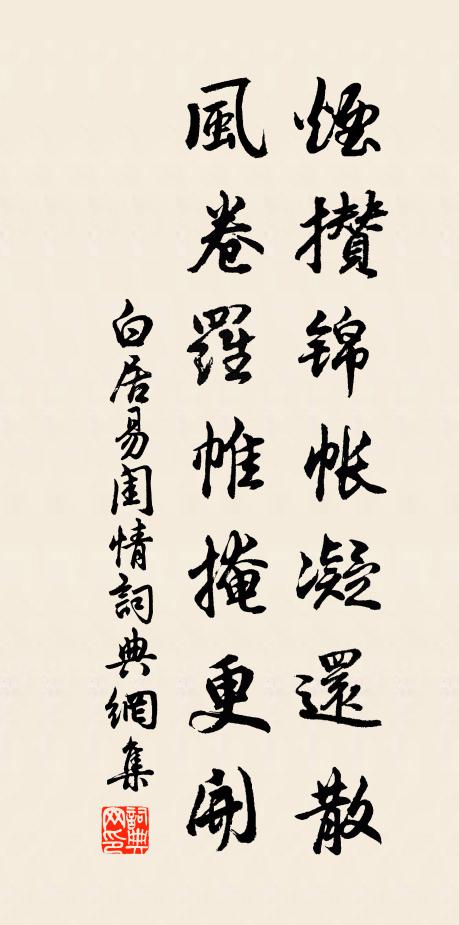 煙攢錦帳凝還散
風卷羅帷掩更開
白居易閨情詞典網集
詞典网印